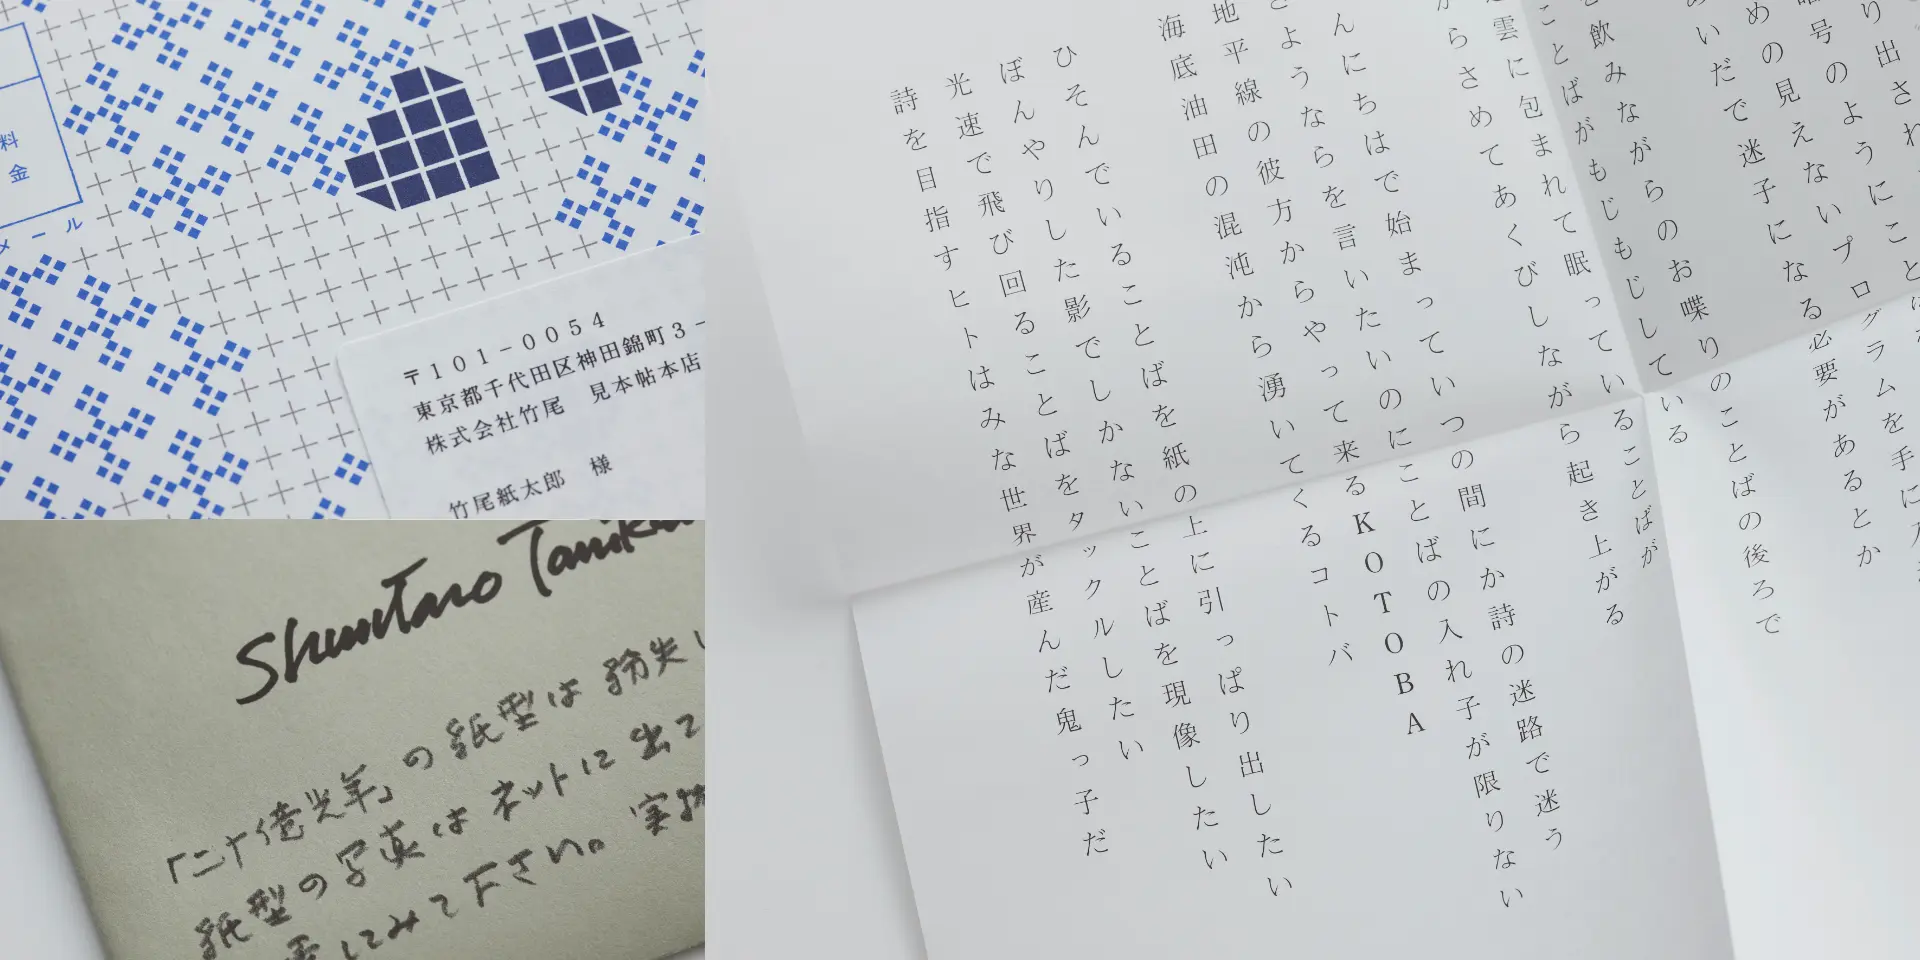 料金
メール
〒101−0054
東京都千代田区神田錦町3−
株式会社竹尾　見本帖本店
竹尾紙太郎　様
Shuntaro Tanik
「二十億光年」の紙型は紛失し
紙型の写真はネットに出て
にみて下さい。実物
り出され
号のようにこと
めの見えないプログラムを手に入
いだで迷子になる必要があるとか
飲みながらのお喋りのことばの後ろで
ことばがもじもじしている
雲に包まれて眠っていることばが
からさめてあくびしながら起き上がる
んにちはで始まっていつの間にか詩の迷路で迷う
さようならを言いたいのにことばの入れ子が限りない
地平線の彼方からやって来るKOTOBA
海底油田の混沌から湧いてくるコトバ
ひそんでいることばを紙の上に引っぱり出したい
ぼんやりした影でしかないことばを現像したい
光速で飛び回ることばをタックルしたい
詩を目指すヒトはみな世界が産んだ鬼っ子だ